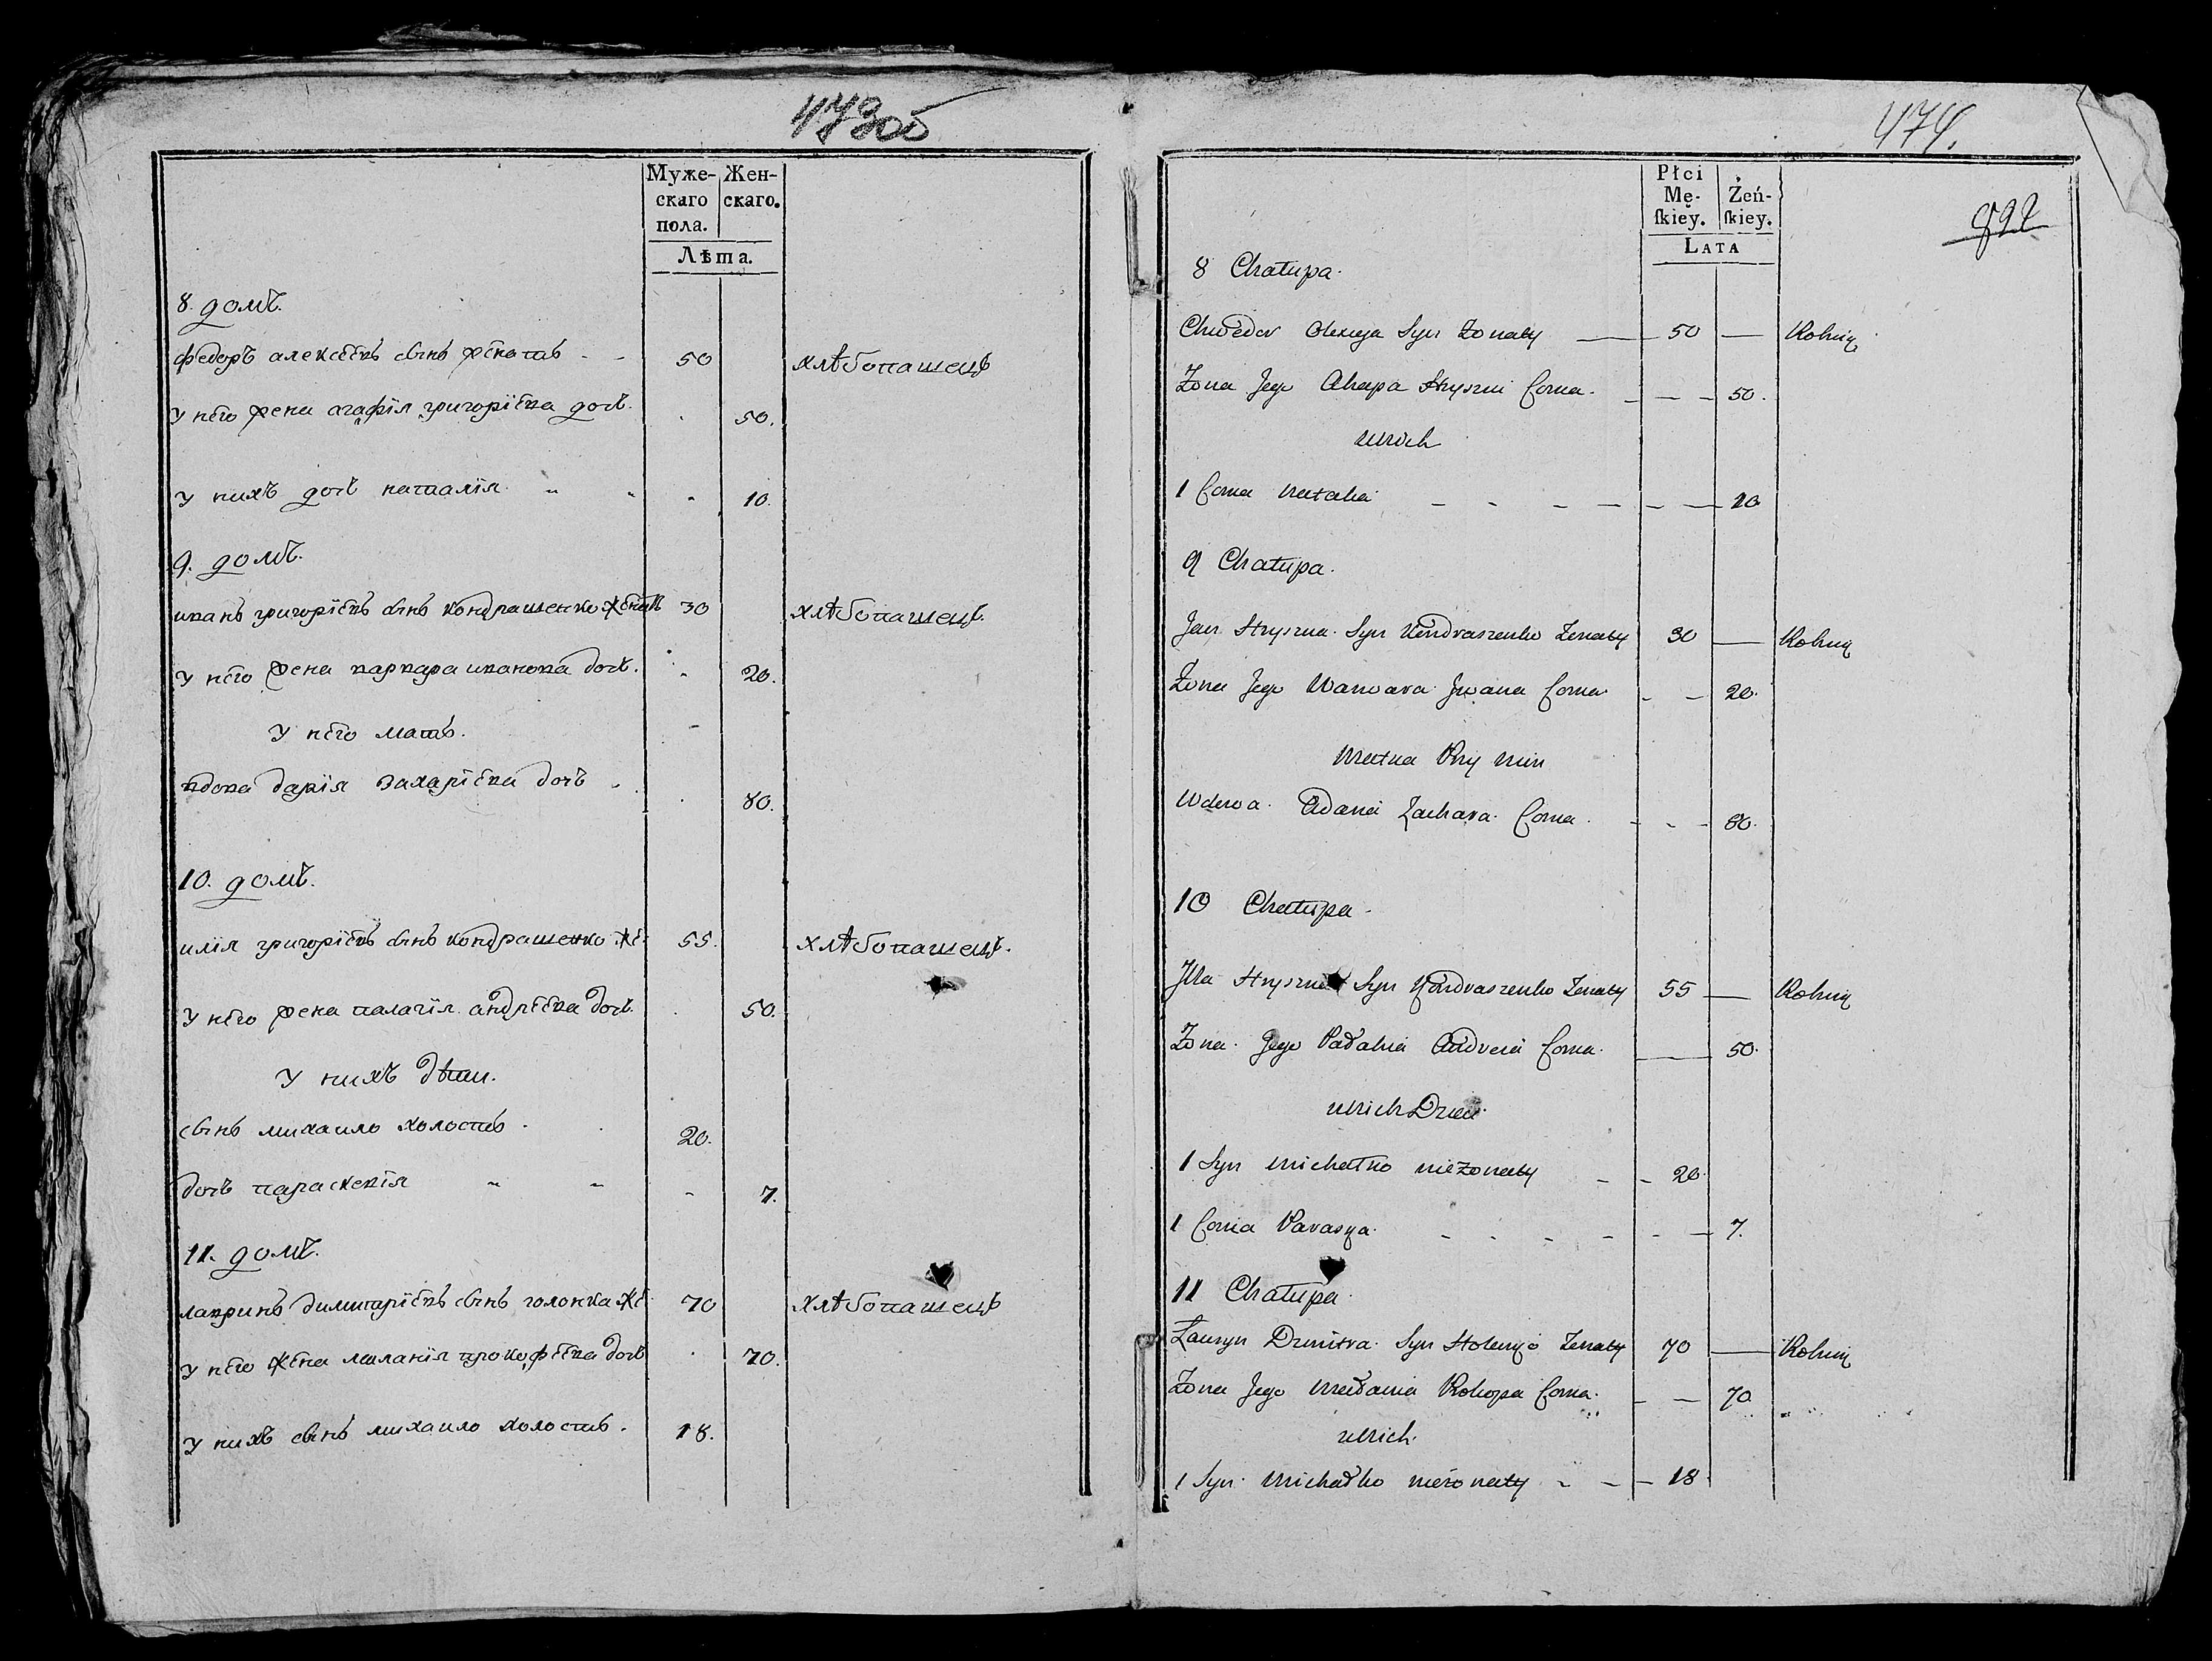 473об
Муже-
скаго
пола.
Жен-
скаго.
Лѣта.
8. домъ.
федоръ алексѣевъ сынъ женатъ - - 50 хлѣбопашецъ
У него жена агафія григоріева дочь. 50.
У нихъ дочь наталія 10.
9. домъ.
иванъ григоріевъ сынъ кондрашенко женатъ 30 хлѣбопашецъ.
У него жена варвара иванова дочь. 20.
У него мать.
вдова дарія захаріева дочь 80.
10. домъ.
илія григоріевъ сынъ кондрашенко же: 55. хлѣбопашецъ.
У него жена палагія андреева дочь. 50.
У нихъ дѣти.
сынъ михаило холостъ. 20.
дочь параскевія 7.
11. домъ.
лавринъ димитріевъ сынъ голонка же: 70 хлѣбопашецъ
У него жена маланія прокофіева дочь 70.
У нихъ сынъ михаило холостъ. 18.
474.
Płci
Mę-
skiey.
Żeń-
skiey.
LATA
8 Chałupa.
Chwedor Olexeja Syn Zonaty 50 — Rolnig
Zona Jego Ahapa Hryszni Corna. 50.
unich
1 Corna Natalia 10
9 Chałupa.
Jan Hryszna Syn Kondraszenko Zenaty 30 — Rolnig
Zona Jego Warwara Jwana Corna 20.
Matka Pry nim
Wdowa Zachara Corna. 80.
10 Chałupa.
Jlla Syn Kondraszenko Zenaty 55 — Rolnig
Zona Jego Pałahia Andreia Corna. 50.
unich Dzieci
1 Syn Michałko niezonaty 20
1 Corna Paraska. 7.
11 Chałupa.
Ławryn Dmitra Syn Zenaty 70 — Rolnig
Zona Jego Małania Prokopa Corna. 70
unich.
1 Syn Michałko niezonaty 18